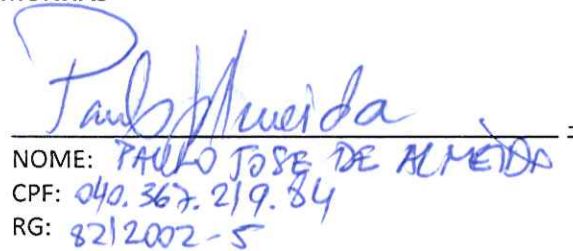 Paulo Almeida
NOME: PAULO JOSE DE ALMEIDA
CPF: 040.367.219.84
RG: 8212002-5